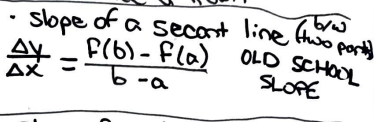 • slope of a secant line (b/w two parts)
Δy/Δx = f(b) - f(a) / b - a OLD SCHOOL SLOPE